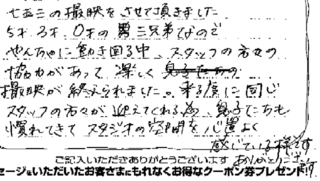 七五三の撮映をさせて頂きました
5才、3才、0才の男三兄弟なので
やんちゃに動き回る中、スタッフの方々の
協力があって楽しく
撮映が終えられました。来る度に同じ
スタッフの方々が迎えてくれる為、息子たちも
慣れてきてスタジオの空間を心置よく
感じている様です
ありがとうございます
ご記入いただきありがとうございます
セージをいただいたお客さまにもれなくお得なクーポン券プレゼント